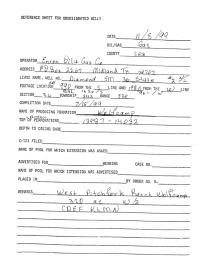 REFERENCE SHEET FOR UNDESIGNATED WELLS
DATE 11/3/99
OIL/GAS Gas
COUNTY Lea
OPERATOR Enron Oil & Gas Co
ADDRESS P.O. Box 2267 Midland Tx 79702
LEASE NAME, WELL NO. Diamond SM 36 State
FOOTAGE LOCATION FROM THE LINE AND FROM THE W LINE
SECTION 36 TOWNSHIP RANGE
COMPLETION DATE
NAME OF PRODUCING FORMATION Wolfcamp
TOP OF PERFORATIONS
DEPTH TO CASING SHOE
C-123 FILED
NAME OF POOL FOR WHICH EXTENSION WAS ASKED
ADVERTISED FOR HEARING CASE NO.
NAME OF POOL FOR WHICH EXTENSION WAS ADVERTISED
PLACED IN BY ORDER NO. R-
REMARKS West Pitchfork Ranch Wolfcamp
320 ac W/2
CDEF KLMN